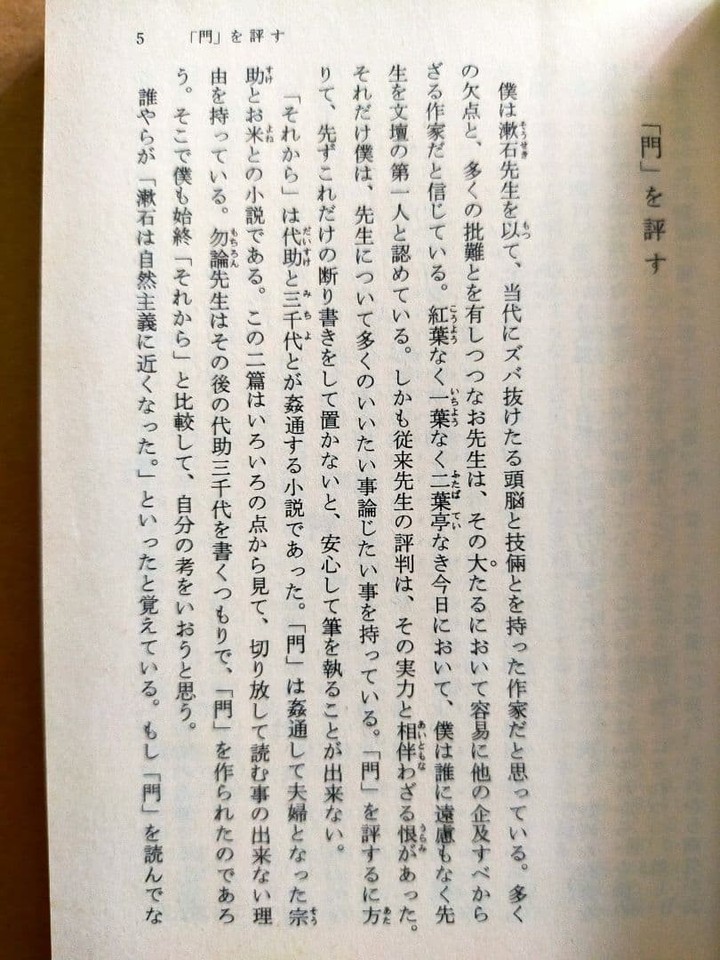 5　「門」を評す
「門」を評す
僕は漱石先生を以て、当代にズバ抜けたる頭脳と技倆とを持った作家だと思っている。多く
の欠点と、多くの批難とを有しつつなお先生は、その大たるにおいて容易に他の企及すべから
ざる作家だと信じている。紅葉なく一葉なく二葉亭なき今日において、僕は誰に遠慮もなく先
生を文壇の第一人と認めている。しかも従来先生の評判は、その実力と相伴わざる恨があった。
それだけ僕は、先生について多くのいいたい事論じたい事を持っている。「門」を評するに方
りて、先ずこれだけの断り書きをして置かないと、安心して筆を執ることが出来ない。
「それから」は代助と三千代とが姦通する小説であった。「門」は姦通して夫婦となった宗
助とお米との小説である。この二篇はいろいろの点から見て、切り放して読む事の出来ない理
由を持っている。勿論先生はその後の代助三千代を書くつもりで、「門」を作られたのであろ
う。そこで僕も始終「それから」と比較して、自分の考をいおうと思う。
誰やらが「漱石は自然主義に近くなった。」といったと覚えている。もし「門」を読んでな